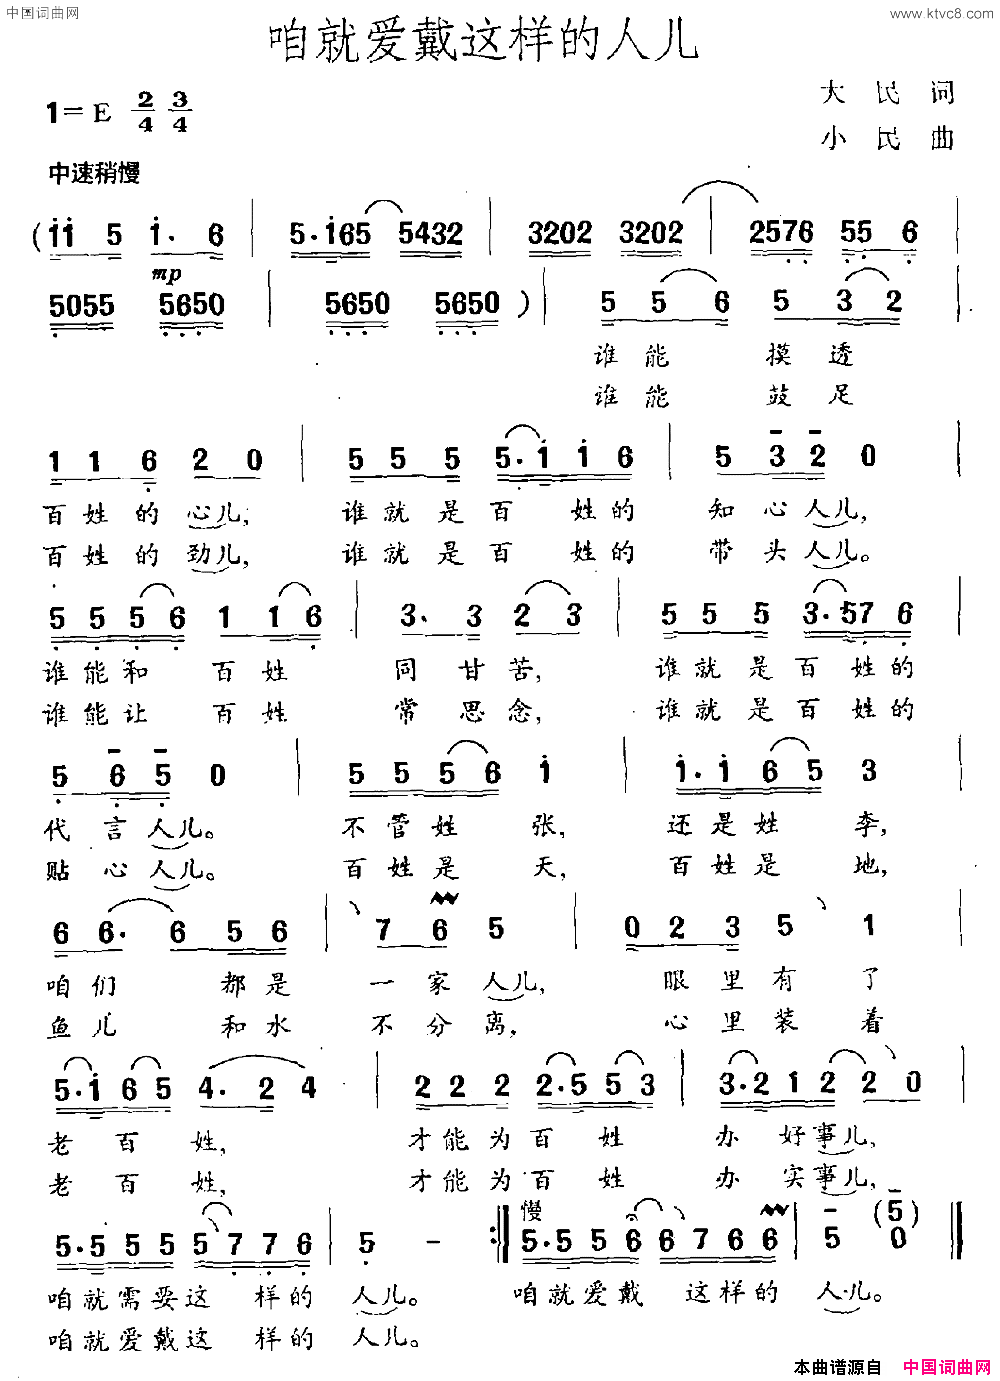 中国词曲网
www.ktvc8.com
咱就爱戴这样的人儿
1=E 2/4 3/4
大民词
小民曲
中速稍慢
(i i 5 i· 6 | 5·i65 5432 | 3202 3202 | 2576 55 6
mp
5055 5650 | 5650 5650 ) | 5 5 6 5 3 2 |
谁能 摸透
谁能 鼓足
1 1 6 2 0 | 5 5 5 5·i i 6 | 5 3 2 0 |
百姓的心儿, 谁就是百姓的 知心人儿,
百姓的劲儿, 谁就是百姓的 带头人儿。
5 5 5 6 1 1 6 | 3· 3 2 3 | 5 5 5 3·57 6
谁能和百姓 同甘苦, 谁就是百姓的
谁能让百姓 常思念, 谁就是百姓的
5 6 5 0 | 5 5 5 6 i | i·i 6 5 3
代言人儿。 不管姓张, 还是姓李,
贴心人儿。 百姓是天, 百姓是地,
6 6· 6 5 6 | 7 6 5 | 0 2 3 5 1 |
咱们都是 一家人儿, 眼里有了
鱼儿和水 不分离, 心里装着
5·i 6 5 4· 2 4 | 2 2 2 2·5 5 3 | 3·2 1 2 2 0
老百姓, 才能为百姓 办好事儿,
老百姓, 才能为百姓 办实事儿,
慢
5·5 5 5 5 7 7 6 | 5 - :| 5·5 5 6 6 7 6 6 | 5 (5) 0 ‖
咱就需要这样的 人儿。 咱就爱戴 这样的 人儿。
咱就爱戴这样的 人儿。
本曲谱源自 中国词曲网